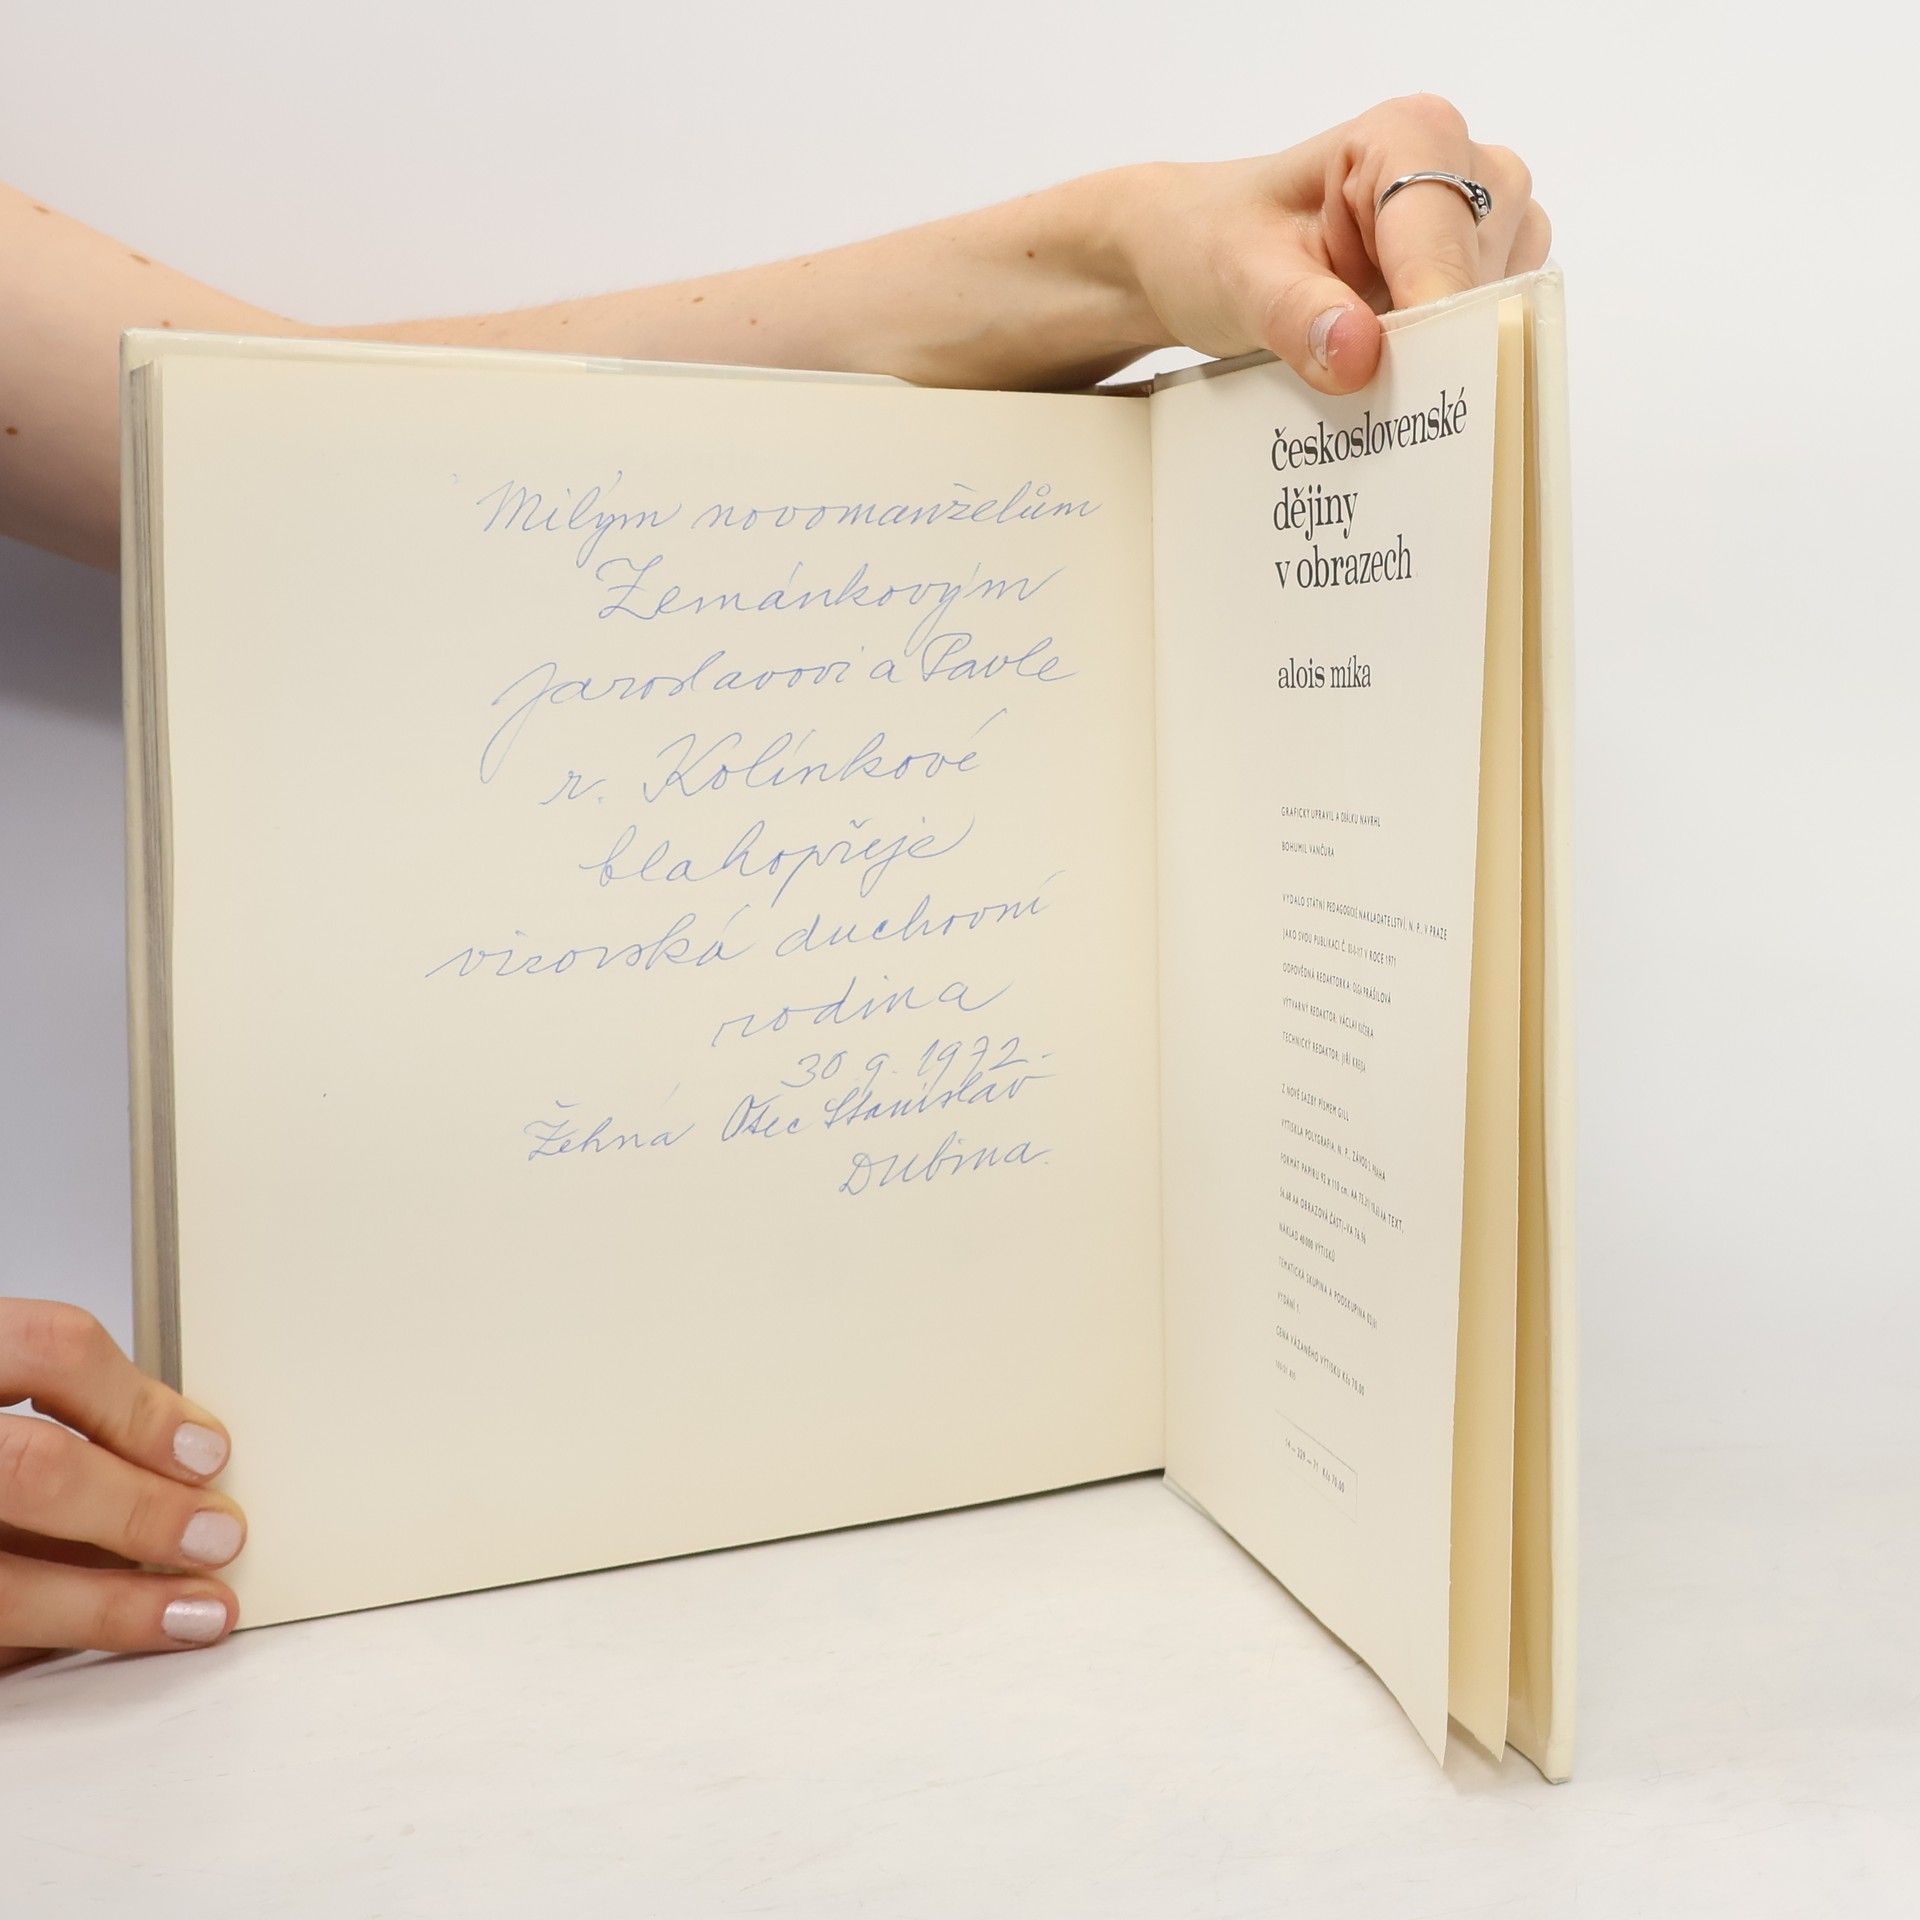 Milým novomanželům
Zemánkovým
Jaroslavovi a Pavle
r. Kolínkové
blahopřeje
vizovská duchovní
rodina
30. 9. 1972.
Žehná Otec Stanislav
Dubina.
československé
dějiny
v obrazech
alois míka
GRAFICKY UPRAVIL A OBÁLKU NAVRHL
BOHUMIL VANČURA
VYDALO STÁTNÍ PEDAGOGICKÉ NAKLADATELSTVÍ, N. P., V PRAZE
JAKO SVOU PUBLIKACI Č. V ROCE 1971
ODPOVĚDNÁ REDAKTORKA: OLGA PRÁŠILOVÁ
VÝTVARNÝ REDAKTOR: VÁCLAV
TECHNICKÝ REDAKTOR: JIŘÍ
Z NOVÉ SAZBY PÍSMEM GILL
VYTISKLA POLYGRAFIA, N. P., ZÁVOD 1, PRAHA
FORMÁT PAPÍRU 92 X 110 cm, AA TEXT,
AA OBRAZOVÁ ČÁST
NÁKLAD 40000 VÝTISKŮ
TEMATICKÁ SKUPINA A PODSKUPINA
VYDÁNÍ 1.
CENA VÁZANÉHO VÝTISKU Kčs 70,00
14 — 229 — 71 Kčs 70,00